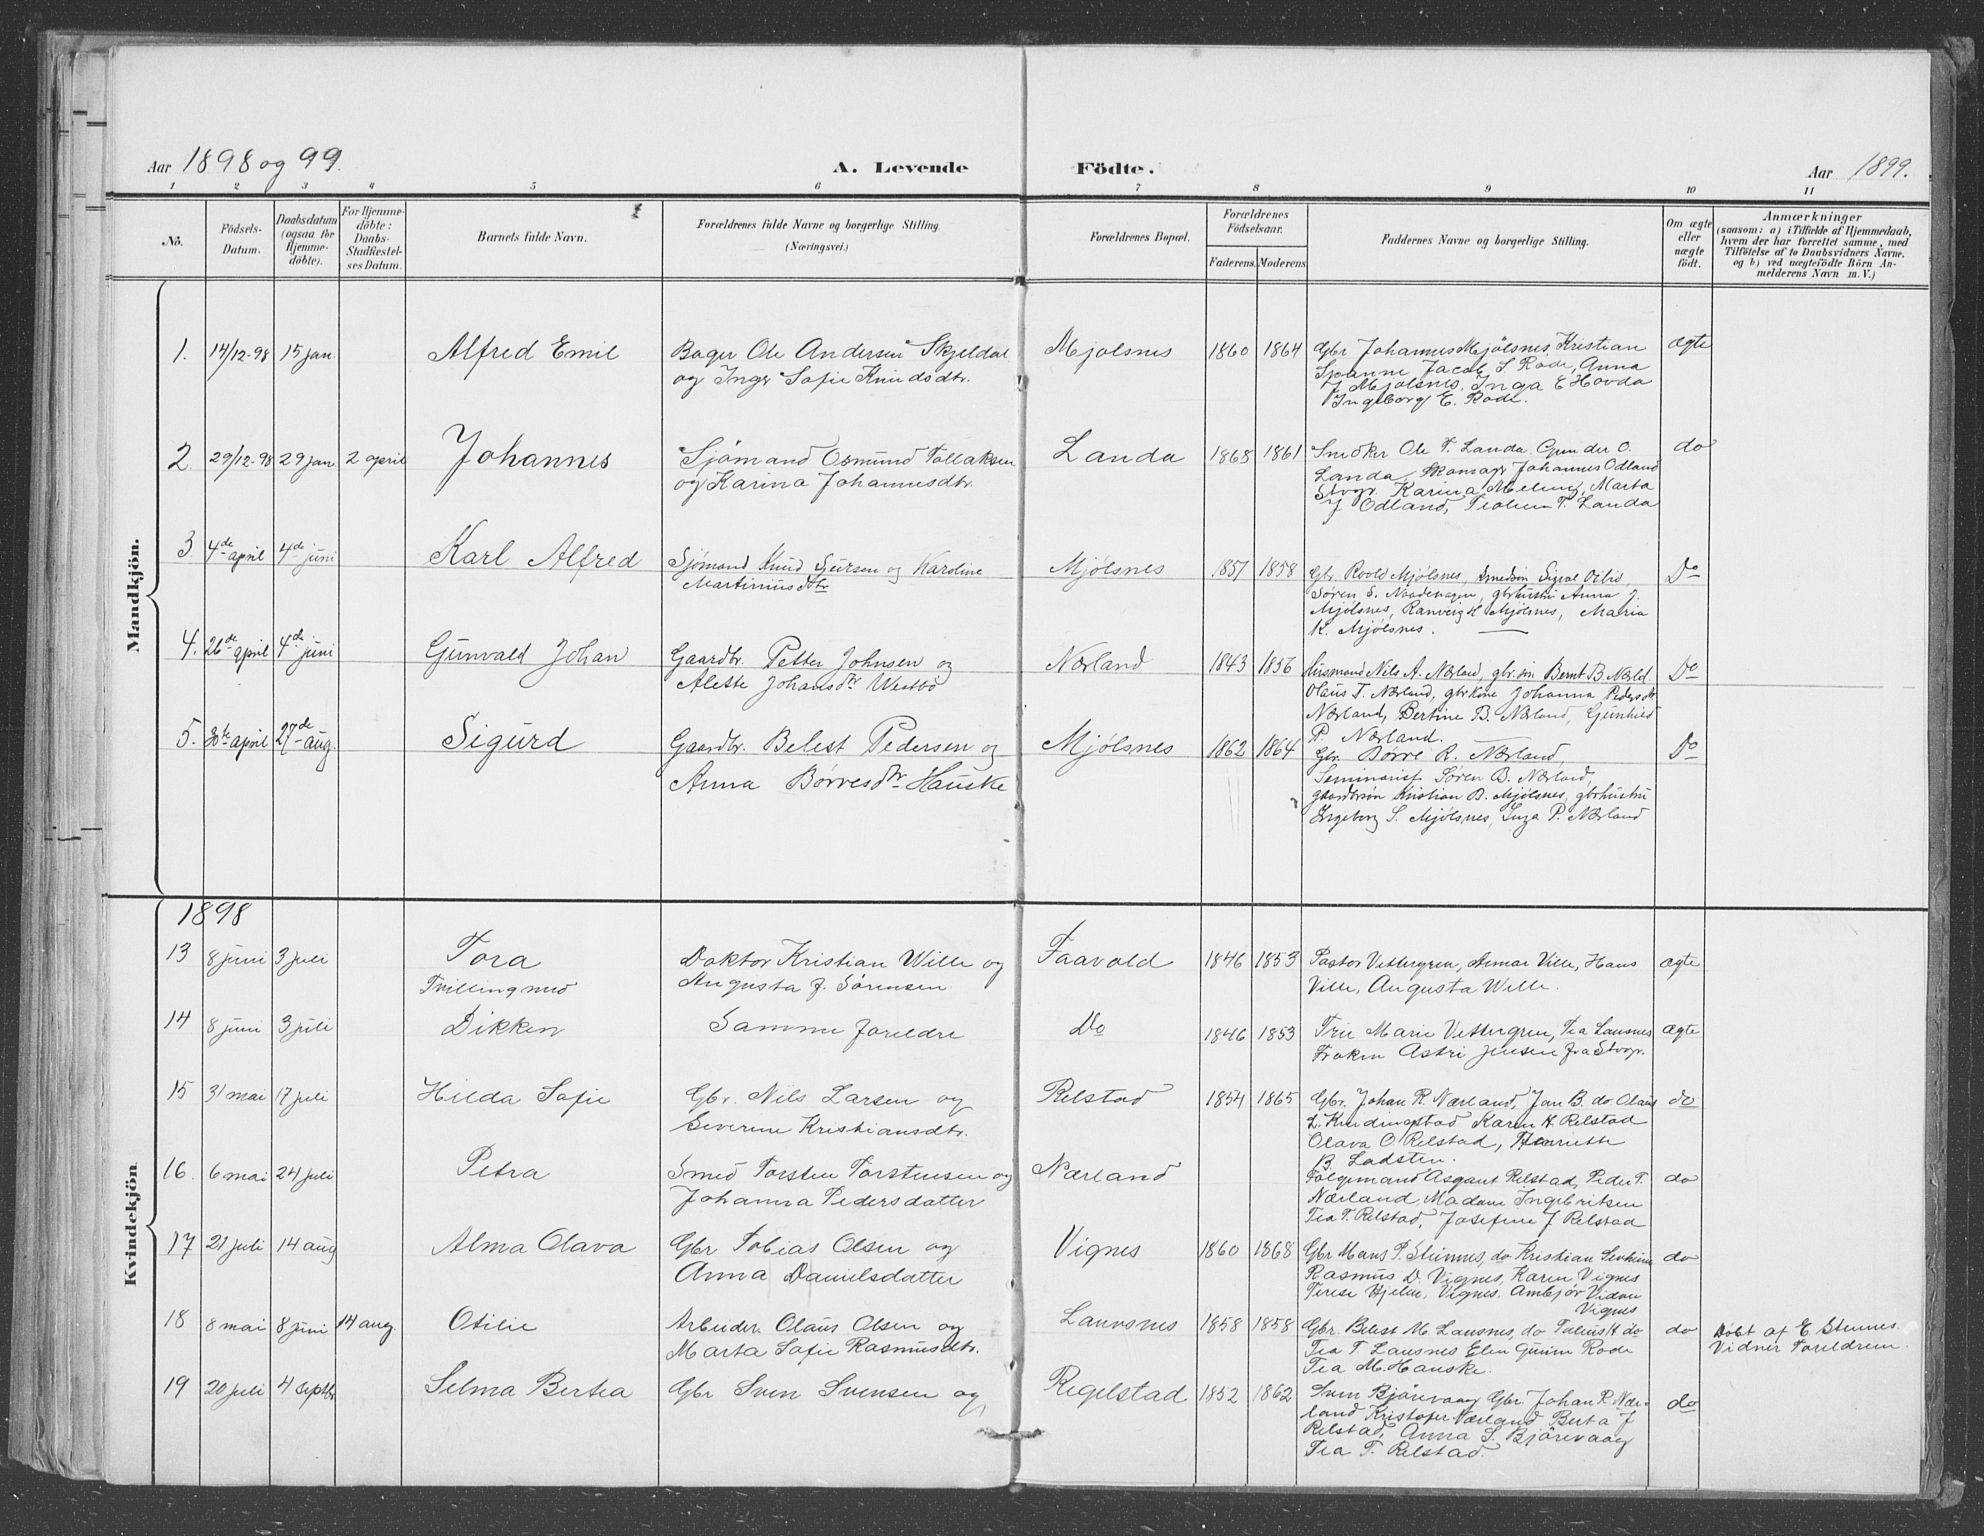 Aar 1898 og 99.
A. Levende Födte.
Aar 1899.
1 2 3 4 5 6 7 8 9 10 11
No.
Födsels-
Datum.
Daabsdatum
(ogsaa for
Hjemme-
döbte).
For Hjemme-
döbte:
Daabs-
Stadfæstel-
ses Datum.
Barnets fulde Navn.
Forældrenes fulde Navne og borgerlige Stilling.
(Næringsvei.)
Forældrenes Bopæl.
Forældrenes
Födselsaar.
Faderens. Moderens.
Faddernes Navne og borgerlige Stilling.
Om ægte
eller
uægte
födt.
Anmærkninger
(saasom: a) i Tilfælde af Hjemmedaab,
hvem der har forrettet samme, med
Tilföielse af to Daabsvidners Navne.
og b) ved uægtefödte Börn An-
melderens Navn m. V.)
Mandkjön.
1. 14/12-98 15 jan. Alfred Emil
Bager Ole Andersen Skjeldal
og Inger Sofie Knudsdtr.
Mjølsnes 1860 1864
Gbr Johannes Mjölsnes, Kristian
Jacob S Rode, Anna
J Mjölsnes, Inga E Hovda
Ingeborg E. Rode.
ægte
2. 29/12-98 29 jan 2 april Johannes
Sjömand Osmund Tollaksen
og Karina Johannesdtr.
Landa 1868 1861
Snedker Ole T. Landa, Gunder O.
Landa, Skomagr Johannes Odland
Stvgr. Karina Meling, Marta
J Odland, T. Landa
do
3 4de april 4de juni Karl Alfred
Sjömand Knud Sjursen og Karoline
Martinius Dtr
Mjølsnes 1857 1858
Gbr. Roold Mjølsnes, Sigval
Søren S. gbrhustri Anna J.
Mjølsnes, Ranveig K Mjølsnes, Maria
K. Mjølsnes.
Do
4. 26de april 4de juni Gunvald Johan
Gaardbr. Petter Johnsen og
Alette Johansdtr Westbø
Nærland 1843 1856
Husmand Nils A. Nærland, gbr.søn Bernt B. Nærld.
Olaus T. Nærland, gbrkone Johanna Pedersdtr
Nærland, Bertine B. Nærland, Gunhild
P. Nærland.
Do
5. 30te april 27de aug. Sigurd
Gaardbr. Belest Pedersen og
Anna Børresdtr Hauske
Mjølsnes 1862 1864
Gbr. Børre R. Nærland,
Seminarist Søren B. Nærland,
gaardbrsøn Kristian B. Mjølsnes, gbrhustru
Ingeborg S. Mjølsnes, Inga P. Nærland
Do
Kvindekjön.
1898
13 8 juni 3 juli Tora
Tvilling med
Doktor Kristian Wille og
Augusta f. Sørensen
Faavold 1846 1853
Pastor Vettergren, Ville, Hans
Ville, Augusta Wille.
ægte
14 8 juni 3 juli Dikken
Samme foreldre
Do 1846 1853
Marie Vettergren, Tea Lausnes
Frøken Astri Jensen fra Stvgr.
ægte
15 31 mai 17 juli Hilda Sofie
Gbr. Nils Larsen og
Severine Kristiansdtr.
Relstad 1854 1865
Gbr. Johan R. Nærland, Jan B. do Olaus
L. Kindingstad Karen H. Relstad
Olava O Relstad, Henriette
B. Ladsten.
do
16. 6 mai 24 juli Petra
Smed Torsten Torstensen og
Johanna Pedersdatter
Nærland
Følgemand Asgaut Relstad, Peder T.
Nærland, Madam Ingebritsen
Tea T. Relstad, Josefine J Relstad
do
17 21 juli 14 aug Alma Olava
Gbr Tobias Olsen og
Anna Danielsdatter
Vignes 1860 1868
Gbr Mons P. do Kristian
Rasmus D. Vignes, Karen Vignes
Terese Hjelm, Vignes, Ambjør
Vignes
do
18 8 mai 8 juni 14 aug. Otilie
Arbeider. Olaus Olsen og
Marta Sofie Rasmusdtr.
Lausnes 1858 1858
Gbr. Belest M. Lausnes, do do
Tea T. Lausnes Elen Rode
Tea M. Hauske.
do
Døbt af E. Stennes.
Vidner Foreldrene.
19 20 juli 4 septbr Selma Bertea
Gbr Sven Svensen og
Regelstad 1852 1862
Sven Bjårevaag Gbr. Johan R. Nær-
land Kristofer Nærland Berta J
Relstad, Anna S. Bjårevaag
Tea T. Relstad.
do